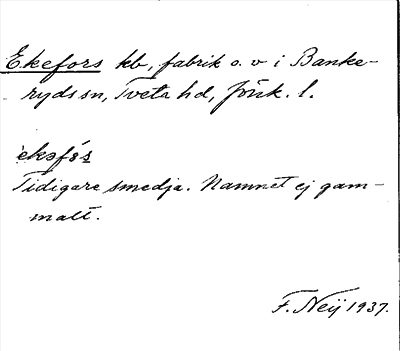 Ekefors kb, fabrik o. v i Banke-
ryds sn, Tveta hd, Jönk. l.
ekəfǒs
Tidigare smedja. Namnet ej gam-
malt.
F. Neij 1937.